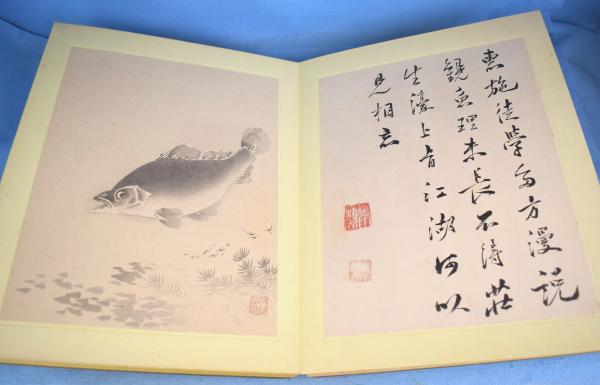 惠施徒學多方漫説
觀魚理未長不得莊
生濠上旨江湖何以
見相忘